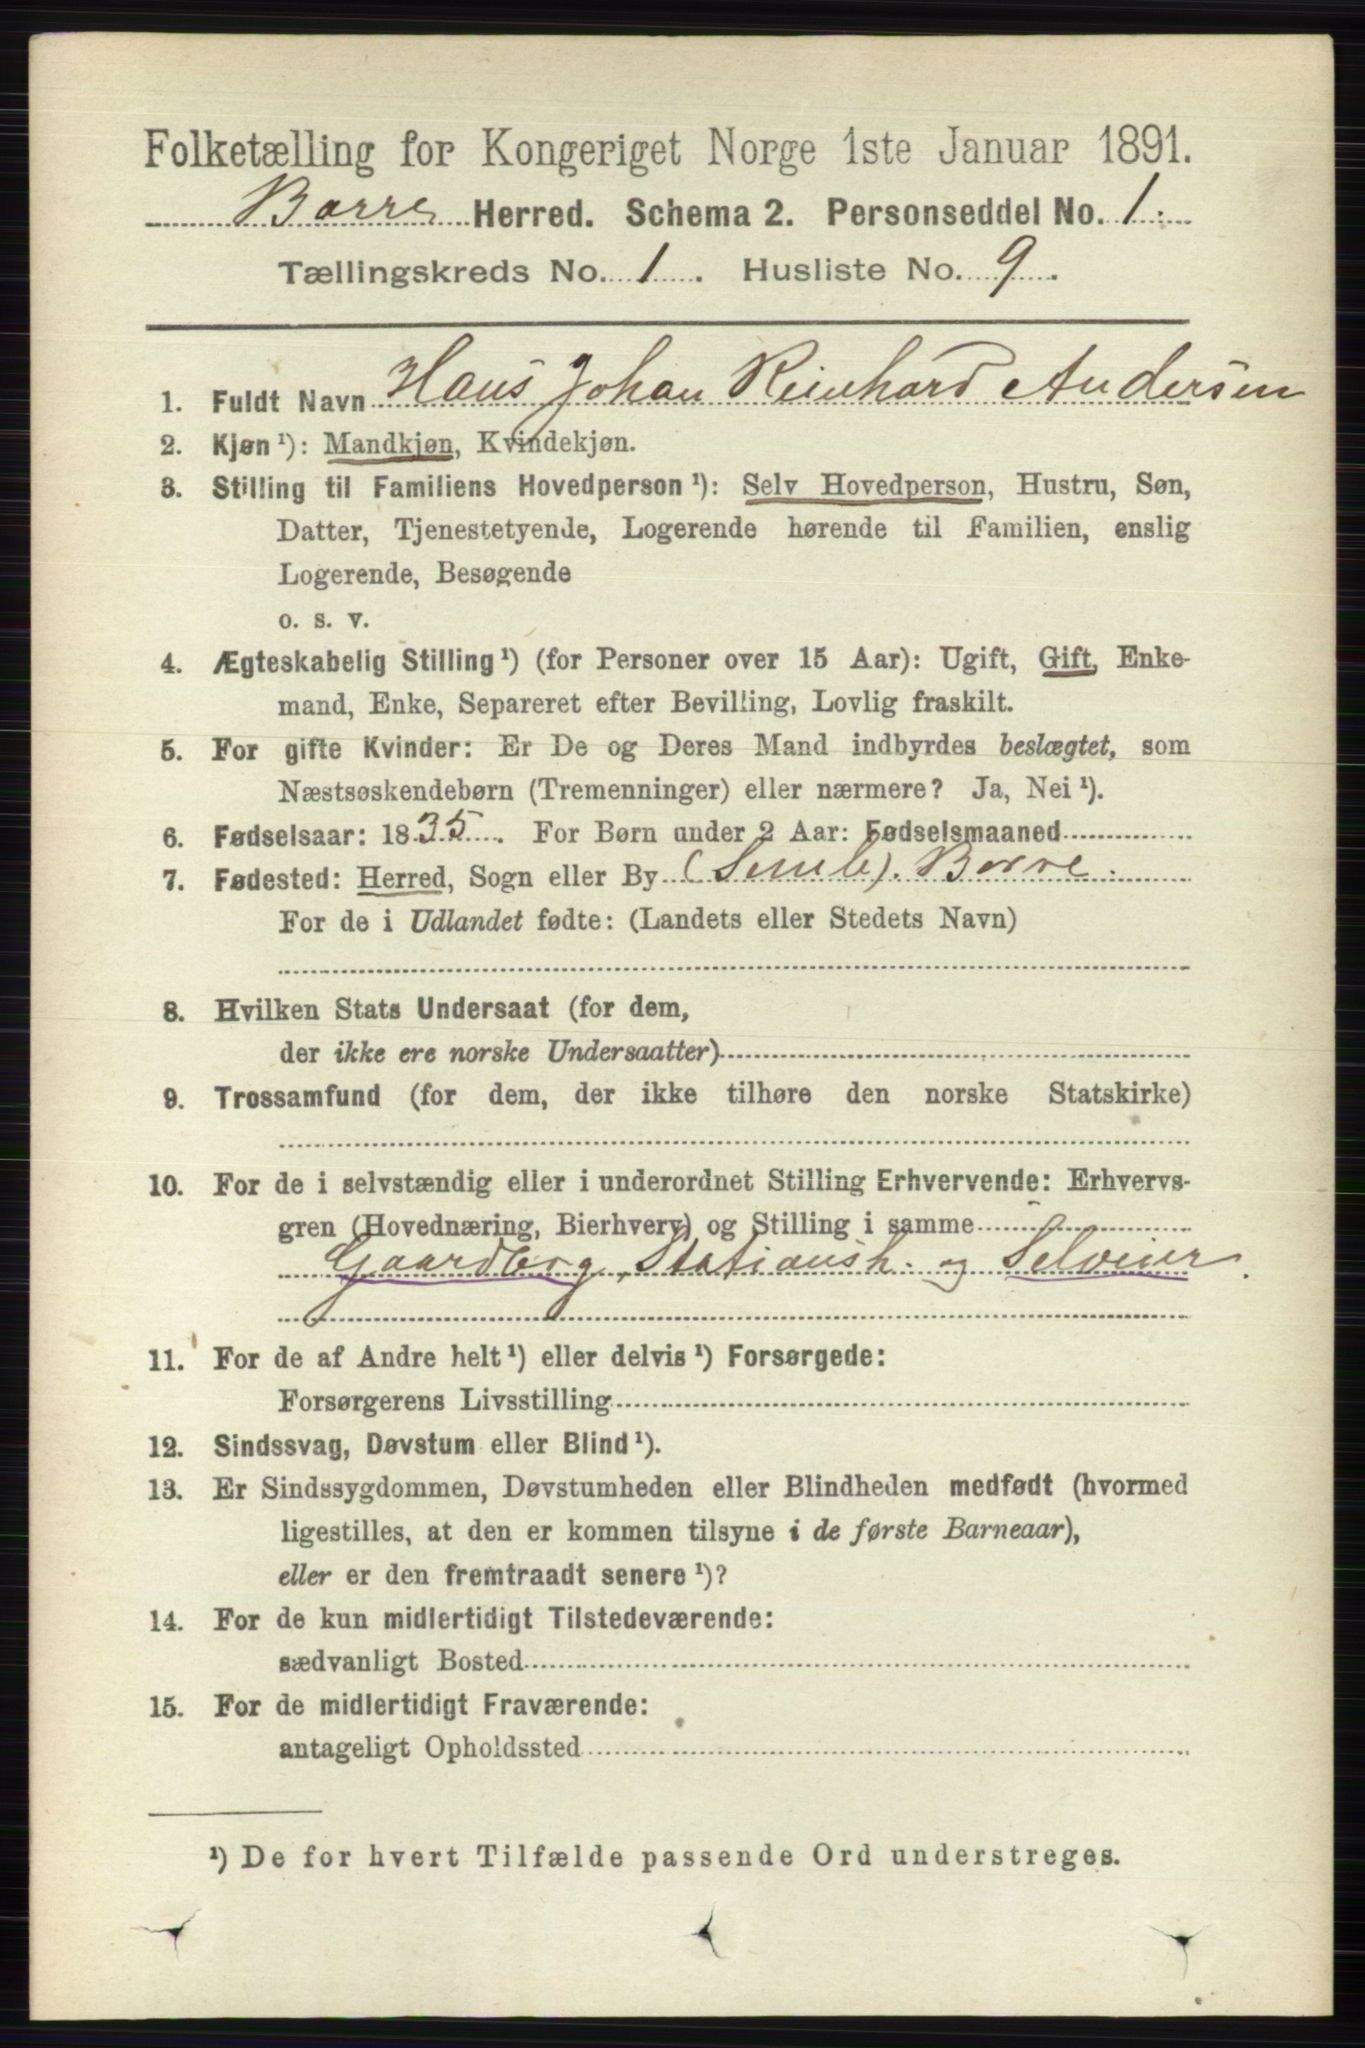 Folketælling for Kongeriget Norge 1ste Januar 1891.
Borre Herred. Schema 2. Personseddel No. 1.
Tællingskreds No. 1. Husliste No. 9.
1. Fuldt Navn Hans Johan Reinhard Andersen
2. Kjøn ¹): Mandkjøn, Kvindekjøn.
3. Stilling til Familiens Hovedperson ¹): Selv Hovedperson, Hustru, Søn,
Datter, Tjenestetyende, Logerende hørende til Familien, enslig
Logerende, Besøgende
o. s. v.
4. Ægteskabelig Stilling ¹) (for Personer over 15 Aar): Ugift, Gift, Enke-
mand, Enke, Separeret efter Bevilling, Lovlig fraskilt.
5. For gifte Kvinder: Er De og Deres Mand indbyrdes beslægtet, som
Næstsøskendebørn (Tremenninger) eller nærmere? Ja, Nei ¹).
6. Fødselsaar: 1835. For Børn under 2 Aar: Fødselsmaaned
7. Fødested: Herred, Sogn eller By (Semb). Borre.
For de i Udlandet fødte: (Landets eller Stedets Navn)
8. Hvilken Stats Undersaat (for dem,
der ikke ere norske Undersaatter)
9. Trossamfund (for dem, der ikke tilhøre den norske Statskirke)
10. For de i selvstændig eller i underordnet Stilling Erhvervende: Erhvervs-
gren (Hovednæring, Bierhverv) og Stilling i samme
Gaardbrg, Stationsh. og Selveier.
11. For de af Andre helt ¹) eller delvis ¹) Forsørgede:
Forsørgerens Livsstilling
12. Sindssvag, Døvstum eller Blind ¹).
13. Er Sindssygdommen, Døvstumheden eller Blindheden medfødt (hvormed
ligestilles, at den er kommen tilsyne i de første Barneaar),
eller er den fremtraadt senere ¹)?
14. For de kun midlertidigt Tilstedeværende:
sædvanligt Bosted
15. For de midlertidigt Fraværende:
antageligt Opholdssted
¹) De for hvert Tilfælde passende Ord understreges.